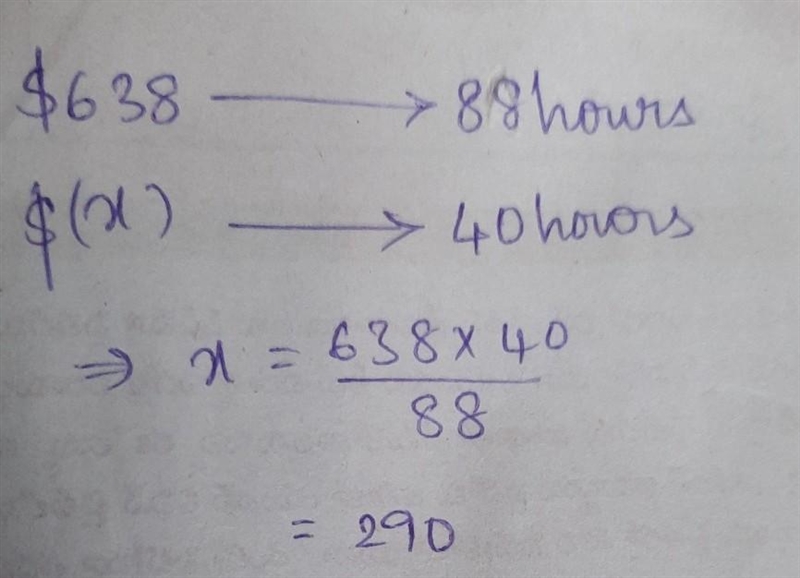 $638 → 88hours
$(x) → 40hours
⇒ x = 638×40
88
= 290